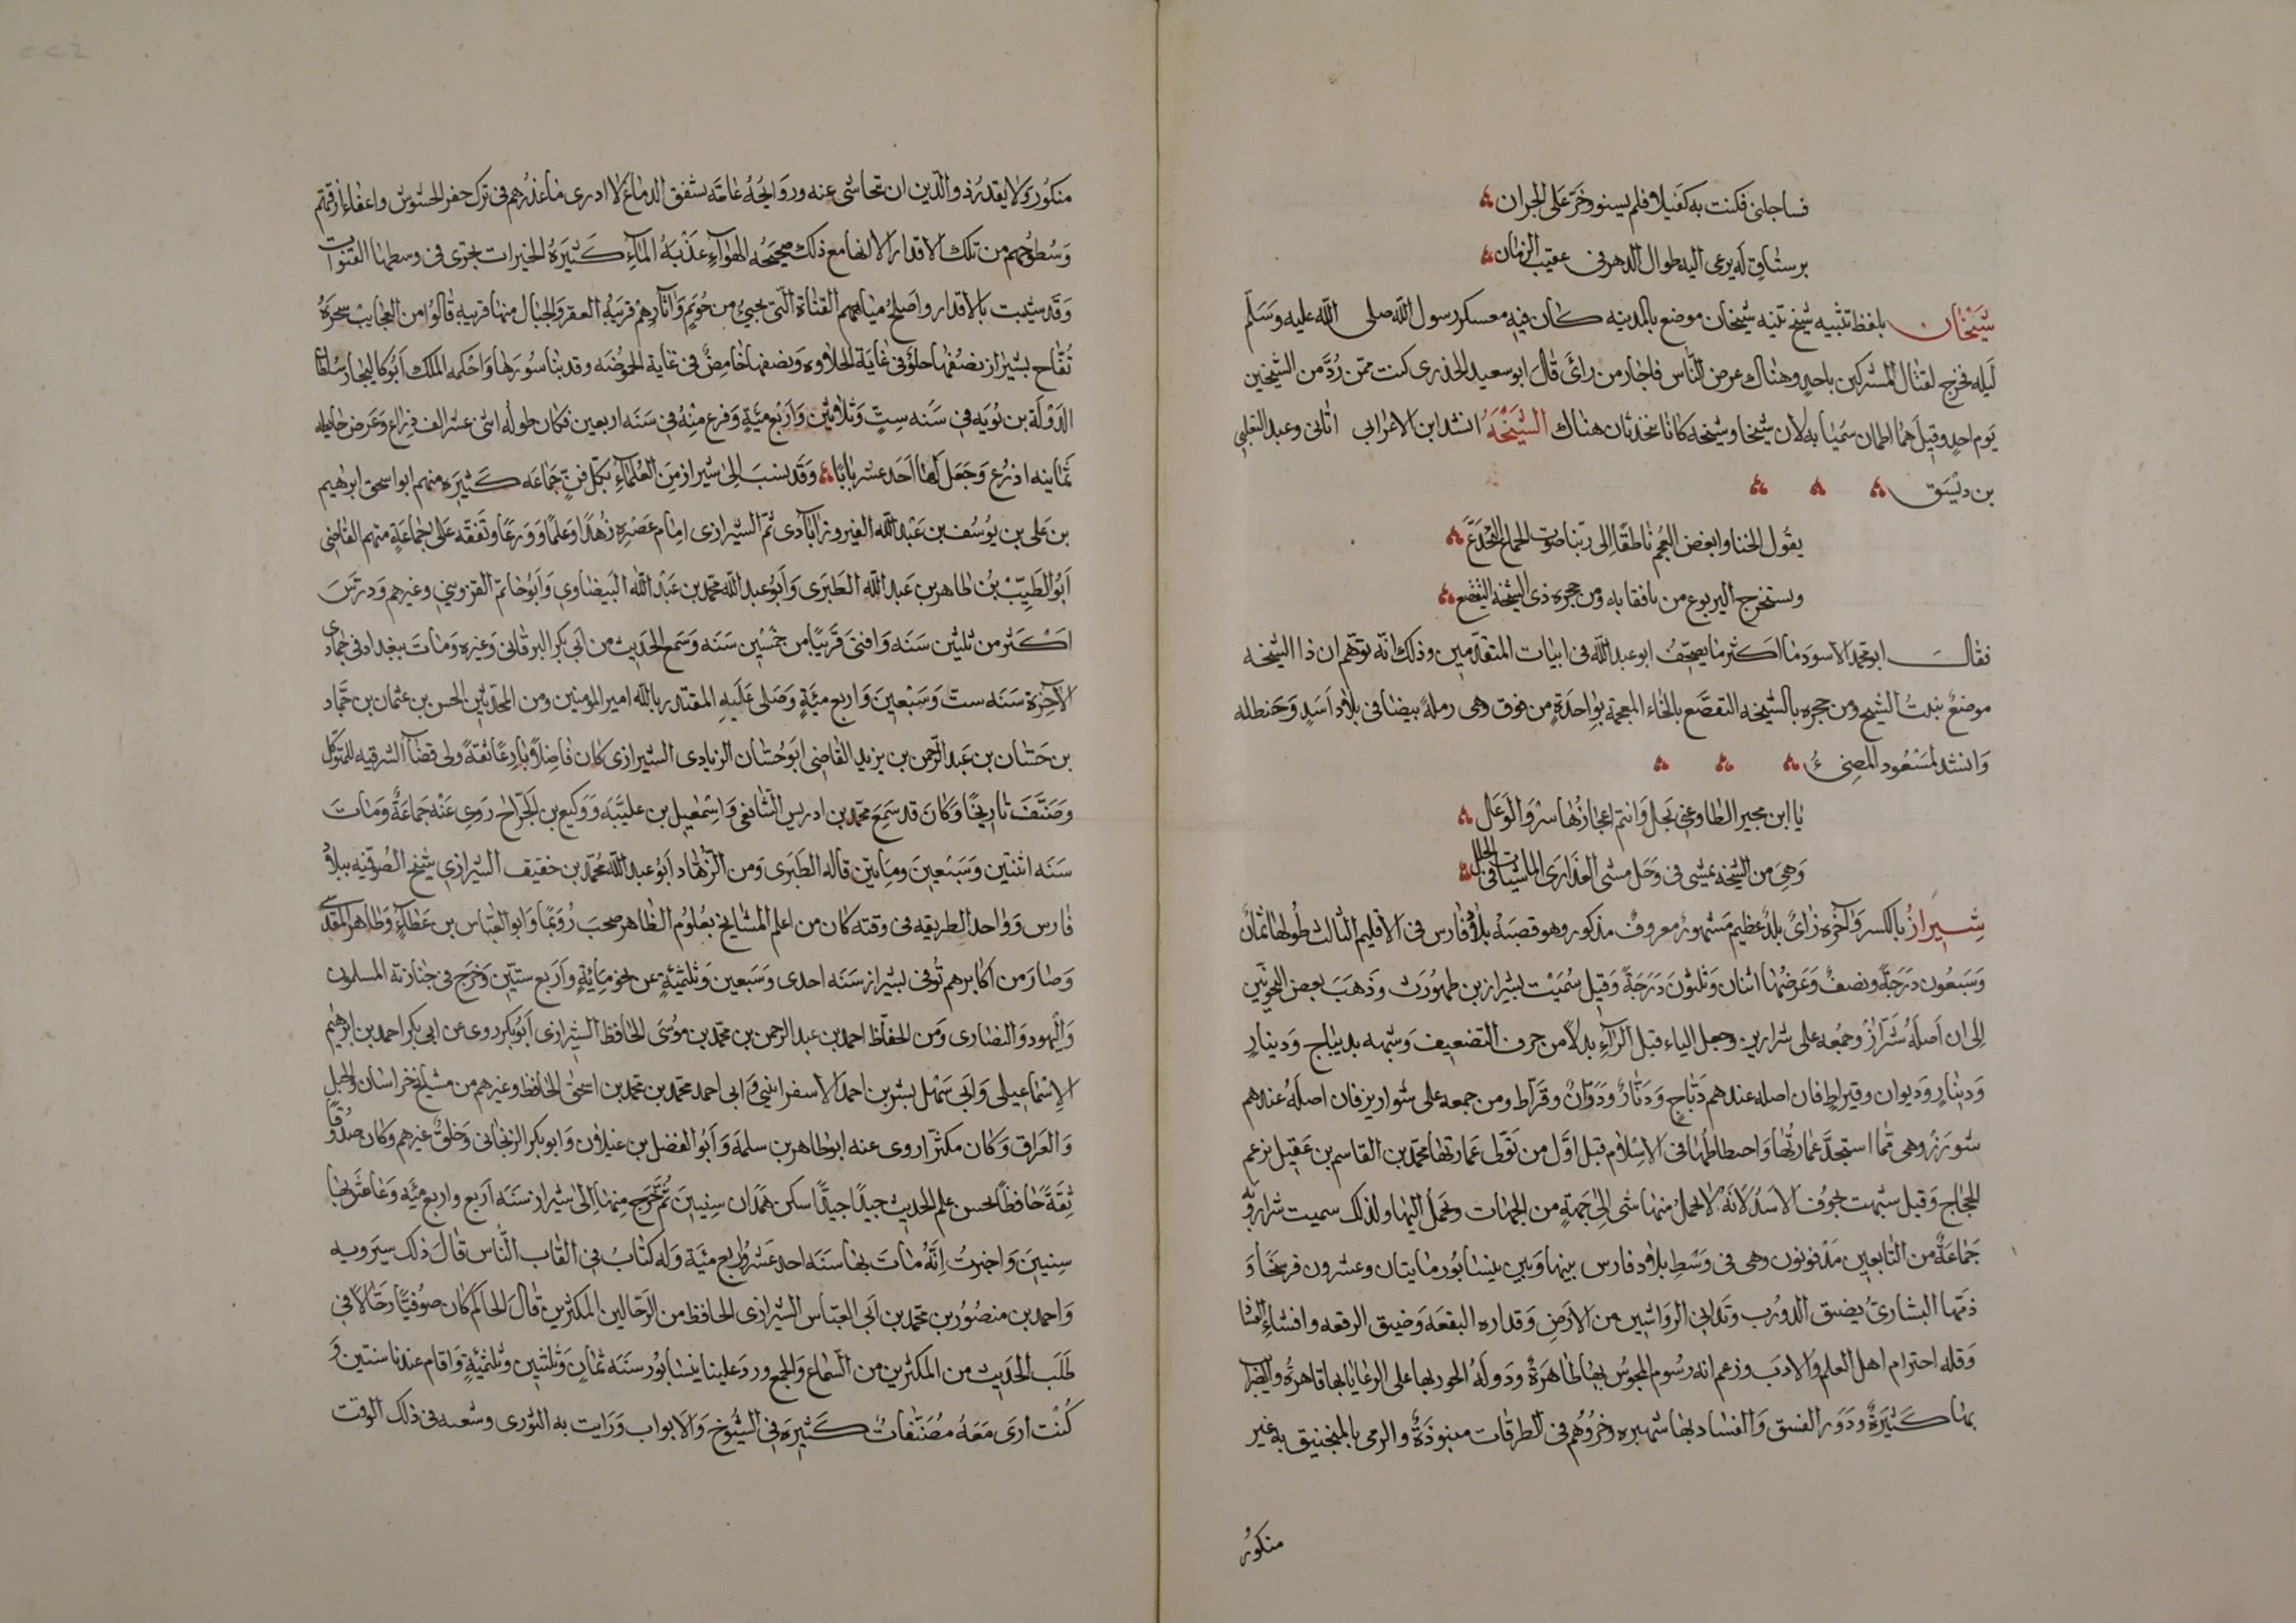 فساجلنى فكنت به كفيلا فلم يسنو وخرّ على الجران
برستاق له يرعى اليه طوال الدهر فى عقيب الزمان
شَيْخان بلفظ تثنيه شيخ ثنيه شيخان موضع بالمدينه كان فيه معسكر رسول الله صلى الله عليه وسلّم
ليله خرج لقتال المشركين باحد وهناك عرض الناس فاجاز من رأى قال ابو سعيد الخدرى كنت ممّن رُدَّ من الشيخين
يوم احد وقيل هما اطمان سُمّيا به لان شيخا وشيخه كانا يتحدثان هناك الشَيْخَهُ انشد ابن الاعرابى اتانى وعيد التغلبى
بن ديسق
يقول الخنا وابغض العجم ناطقًا الى ربّنا صوت الحمار اليُجَدَّع
ويستخرج اليربوع من نافقايه ومن حجره ذى الشيخه اليتقصع
فقال ابو محمد الاسود ما اكثر ما يصحّف ابو عبد الله فى ابيات المتقدّمين وذلك انّه توّهم ان ذا الشيخه
موضعٌ ينبت الشيح ومن حجره بالشيخه التقصّع بالخاء المعجمة بواحدةٍ من فوق وهى رملةٌ بيضا فى بلاد اَسَدٍ وحنظله
وانشد لمسعود المضىءُ
يا ابن مجير الطاوعى بجل وانتم اعجازها سرو الوعل
وهى من الشيخه تمشى فى وحل مشى العذارى الماشيات فى الحلل
شِيرازُ بالكسر وآخره زاىٌ بلدٌ عظيم مشهورٌ معروفٌ مذكور وهو قصبة بلاد فارس فى الاقليم الثالث طولها ثمان
وسبعون درجةً ونصفٌ وعرضها اثنان وثلثون درجةً وقيل سُمّيت بشيراز بن طهمورث وذهب بعض النحويّين
الى ان اَصله شَرّازٌ وجمعه على شراريز وجعل الياء قبل الرآء بدلاً من حرف التضعيف وشبهه بديباج ودينارٍ
ودينارٍ وديوان وقيراطٍ فان اصله عندهم دَبّاج ودنّارٌ ودوّانٌ وقرّاط ومن جمعه على شواريز فان اصله عندهم
شورَزٌ وهى ممّا استجدَّ عمارتُها واحطاطُها فى الاسلام قيل اوّل من تولّى عمارتها محمّد بن القاسم بن عقيل بن عم
الحجّاج وقيل شبّهت بجوف الاسد لانّه لا يحمل منها شى الى جهةٍ من الجهات ويُحمَلُ اليها ولذلك سميت شيراز وبه
جماعةٌ من التابعين مدفونون وهى فى وسط بلاد فارس بينها وبين نيسابور مايتان وعشرون فرسخًا وَ
ذمّها البشارىّ بضيق الدورب وتدانى الرواشين من الارض وقذاره البقعه وضيق الرقعه وافشاءِ الفسا
وقله احترام اهل العلم والادب وزعم انه رسوم المجوس بها ظاهرةٌ ودوله الجور بها على الرعايا بها قاهرةُ والضرايب
بها كثيرةٌ ودور الفسق والفساد بها شهيره وخروُهُم فى الطرقات منبوذةٌ والرمى بالمنجنيق به غير
منكور
منكورٍ لا يقدر ذو الدّين ان يتحاشى عنه وروايحُهُ عامّه يشفق الدماغ لا ادرى ما عذرُهم فى ترك حفر الحشوش واعفاء ازقّتهم
وسطوحهم من تلك الاقدار الا انها مع ذلك صحيحُه الهوآءِ عذبة المآءِ كثيرة الخيرات تجرى فى وسطها القنوات
وقد شيبت بالاقدار واصلح مياههم القناة الّتى تجىءُ من جُوَيم وآبارهم قريبة العقر والجبال منها قريبة قالوا من العجايب شجرةُ
تُفّاح بشيراز نصفها حلوٌ فى غاية الحلاوه ونصفها حامضٌ فى غاية الحموضه وقد بنا سورَها واحكمه الملك اَبُو كاليجار سلطا
الدولة بن بُويه فى سنه ستٍّ وثلاثين واربع مئةٍ وفرغ منهُ فى سنه اربعين فكان طوله اثنى عشر الف ذراع وعرض حايطه
ثمانيه اذرُع وجعل لها احد عشر بابًا وقد نسب الى شيراز من العُلمآءِ بكل فنٍّ جماعه كثيره منهم ابو اسحق ابرهيم
بن على بن يوسف بن عبد الله الفيروزاباذى ثمّ الشيرازى امام عصره زهدًا وعلمًا وورعًا وتفقّه على جماعةٍ منهم القاضى
اَبُو الطَيّب بن طاهر بن عبد الله الطبرى وابو عبد الله محمد بن عبد الله البيضاوى وابو حاتم القزوينى وغيرهم ودرّس
اكثر من ثلثين سنه وافتى قريبًا من خمسين سنه وسمع الحديث من ابى بكر البرقانى وغيره ومات ببغداد فى جمادى
الآخره سنه ست وسبعين واربع مئةٍ وصلى عليه المقتدر بالله امير المومنين ومن المحدثين الحسن بن عثمان بن حمّاد
بن حسّان بن عبد الرحمن بن يزيد القاضى ابو حسّان الزيادى الشيرازى كان فاضلاً بارعًا ثقةً ولى قضآ الشرقيه للمتوكّل
وصنّف تاريخًا وكان قد سمع محمّد بن ادريس الشافعى واسمعيل بن عليّة ووكيع بن الجرّاح روى عنه جماعةٌ ومات
سنه اثنتين وسبعين ومايتين قاله الطبرى ومن الزهّاد ابو عبد الله محمّد بن خفيف الشيرازى شيخ الصوفيه ببلاد
فارس وواحد الطريقه فى وقته كان من اعلم المشايخ بعلوم الظاهر صحب رُوَيمًا وابو العبّاس بن عطآءٍ وطاهر المقدسى
وصار من اكابرهم توفى بشيراز سنه احدى وسبعين وثلثمئةٍ عن نحو مايةٍ واربع ستّين وخرج فى جنازته المسلمون
واليهود والنصارى ومن الحفّاظ احمد بن عبد الرحمن بن محمّد بن موسى الحافظ الشيرازى ابو بكر روى عن ابى بكر احمد بن ابرهيم
الاسماعيلى وابى سهل بشر بن احمد الاسفراينى وابى احمد محمّد بن محمد بن اسحق الحافظ وغيرهم من مشايخ خراسان والجبل
والعراق وكان مكثرًا روى عنه ابو طاهر بن سلمه وابو الفضل بن غيلان وابو بكر الزنجانى وخلقٌ غيرهم وكان صدوقًا
ثقةً حافظًا يحسن علم الحديث جيدًا جيدًا سكن همدان سنين ثُمّ خرج منها الى شيراز سنه اربع واربع مئه وعاش بها
سنين واخبرتُ انّه مات بها سنه احد عشر واربع مئة وله كتابٌ فى القاب النّاس قال ذلك سيرويه
واحمد بن منصور بن محمّد بن ابى العبّاس الشيرازى الحافظ من الرحّالين المكثرين قال الحاكم كان صوفيًّا رحّالاً فى
طَلَب الحديث من المكثرين من السّماع والجمع ورد علينا نيسابور سنه ثمانٍ وثلثين وثلثمئةٍ واقام عندنا سنتين وَ
كُنت ارى معه مصنّفاتٌ كثيره فى الشيوخ والابواب ورايت به الثورى وشعبه فى ذلك الوقت